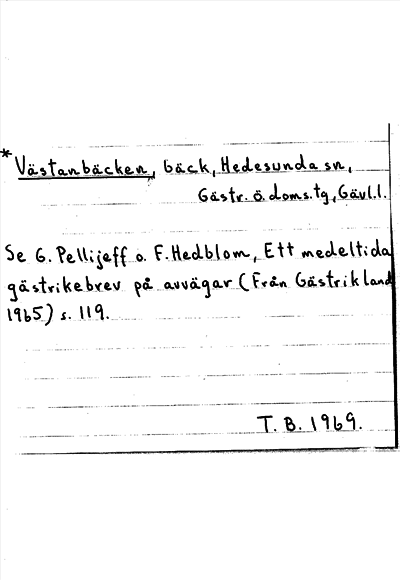 * Västanbäcken, bäck, Hedesunda sn,
Gästr. ö. doms. tg, Gävl. l.
Se G. Pellijeff o. F. Hedblom, Ett medeltida
gästrikebrev på avvägar (Från Gästrikland
1965) s. 119.
T. B. 1969.